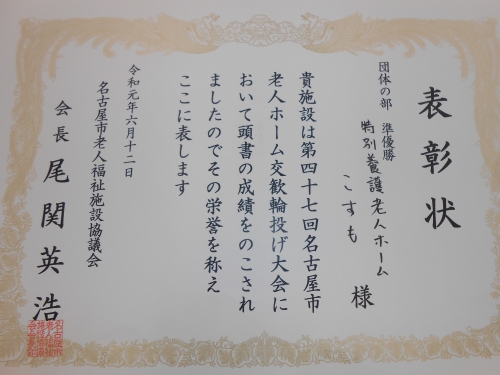 表彰状
団体の部 準優勝
特別養護老人ホーム
こすも 様
貴施設は第四十七回名古屋市
老人ホーム交歓輪投げ大会に
おいて頭書の成績をのこされ
ましたのでその栄誉を称え
ここに表します
令和元年六月十二日
名古屋市老人福祉施設協議会
会長 尾関英浩